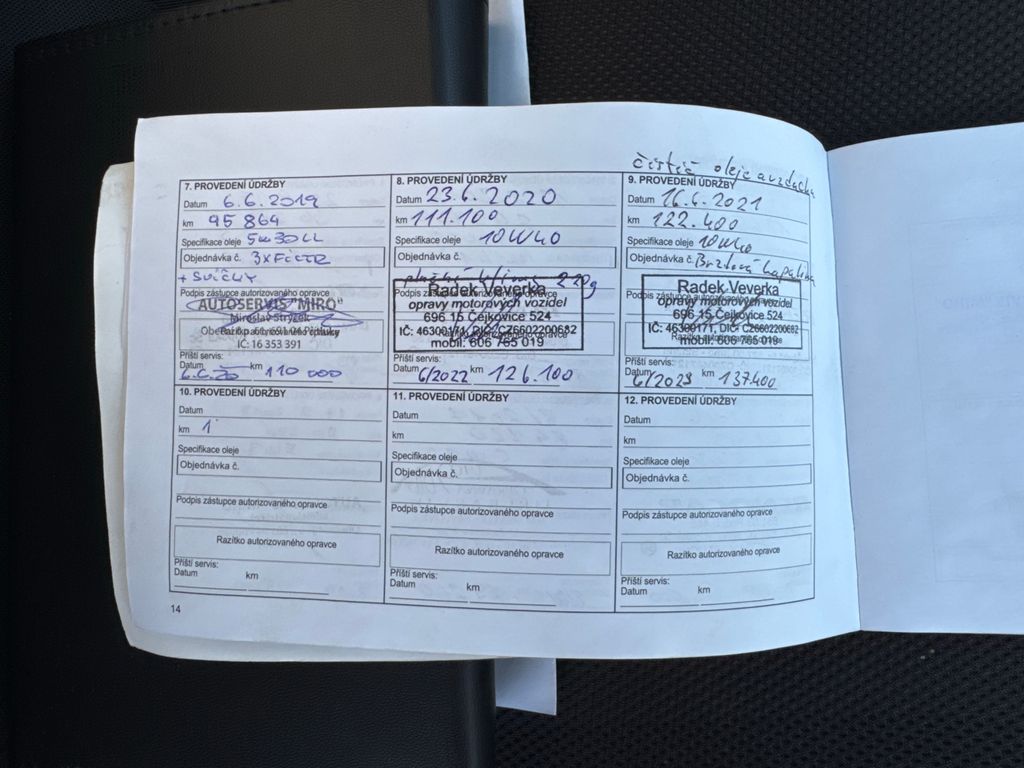 čistič oleje a vzduchu
7. PROVEDENÍ ÚDRŽBY
Datum 6.6.2019
km 95 864
Specifikace oleje 5W30LL
Objednávka č. 3xFILTR
+ SVÍČKY
Podpis zástupce autorizovaného opravce
AUTOSERVIS "MIRO"
Miroslav Strýžek
IČ: 16 353 391
Příští servis:
Datum 6.6.20 km 110 000
8. PROVEDENÍ ÚDRŽBY
Datum 23.6.2020
km 111.100
Specifikace oleje 10W40
Objednávka č.
220g
Podpis zástupce autorizovaného opravce
Radek Veverka
opravy motorových vozidel
696 15 Čejkovice 524
IČ: 46300171, DIČ: CZ6602200682
mobil: 606 765 019
Příští servis:
Datum 6/2022 km 126.100
9. PROVEDENÍ ÚDRŽBY
Datum 16.6.2021
km 122.400
Specifikace oleje 10W40
Objednávka č. Brzdová kapalina
Podpis zástupce autorizovaného opravce
Radek Veverka
opravy motorových vozidel
696 15 Čejkovice 524
IČ: 46300171, DIČ: CZ6602200682
mobil: 606 765 019
Příští servis:
Datum 6/2023 km 137.400
10. PROVEDENÍ ÚDRŽBY
Datum
km 1
Specifikace oleje
Objednávka č.
Podpis zástupce autorizovaného opravce
Razítko autorizovaného opravce
Příští servis:
Datum km
11. PROVEDENÍ ÚDRŽBY
Datum
km
Specifikace oleje
Objednávka č.
Podpis zástupce autorizovaného opravce
Razítko autorizovaného opravce
Příští servis:
Datum km
12. PROVEDENÍ ÚDRŽBY
Datum
km
Specifikace oleje
Objednávka č.
Podpis zástupce autorizovaného opravce
Razítko autorizovaného opravce
Příští servis:
Datum km
14